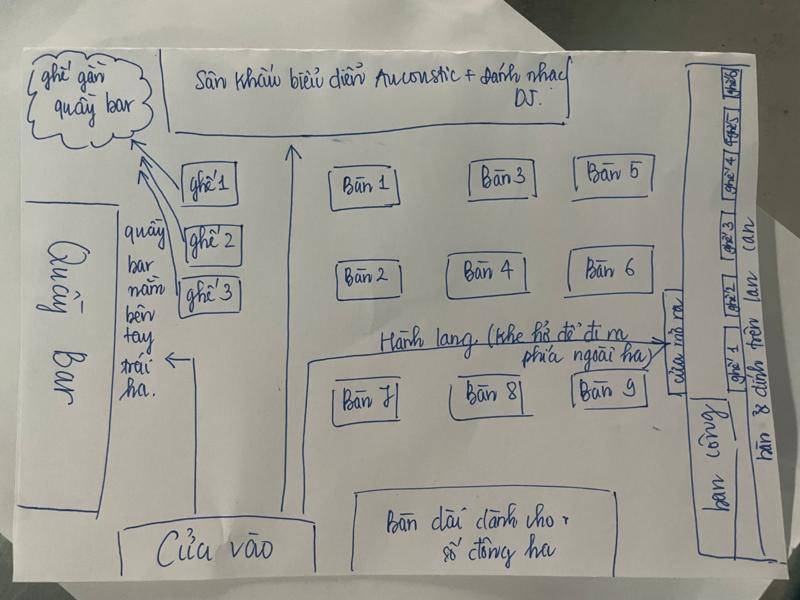 ghế gần
quầy bar
Sân khấu biểu diễn Aucoustic + đánh nhạc
DJ.
ghế 1
ghế 2
ghế 3
Bàn 1
Bàn 3
Bàn 5
Bàn 2
Bàn 4
Bàn 6
Quầy Bar
quầy
bar
nằm
bên
tay
trái
ha.
Hành lang (khe hở để đi ra
phía ngoài ha)
cửa mở ra
Bàn 7
Bàn 8
Bàn 9
ghế 6
ghế 5
ghế 4
ghế 3
ghế 2
ghế 1
ban công
bàn 8 dính trên lan can
Cửa vào
Bàn dài dành cho
số đông ha